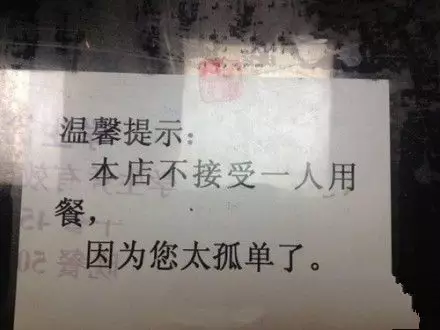 温馨提示:
本店不接受一人用
餐,
因为您太孤单了。